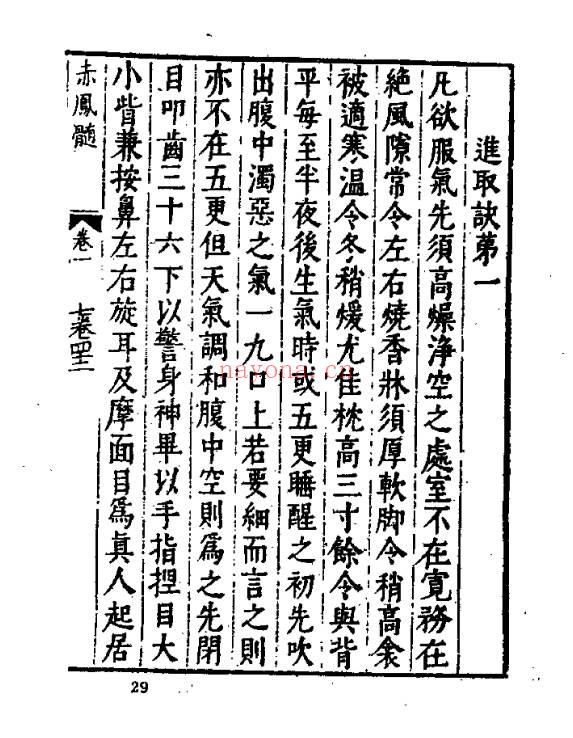 進取訣第一
凡欲服氣先須高燥淨空之處室不在寬務在
絕風隙常令左右燒香牀須厚軟脚令稍高衾
被適寒温令冬稍煖尤佳枕高三寸餘令與背
平每至半夜後生氣時或五更睡醒之初先吹
出腹中濁惡之氣一九口上若要細而言之則
亦不在五更但天氣調和腹中空則爲之先閉
目叩齒三十六下以警身神畢以手指捏目大
小眥兼按鼻左右旋耳及摩面目爲真人起居
赤鳳髓
卷一
29
nayona.cn